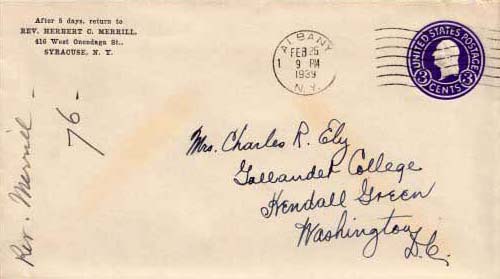 After 5 days, return to
REV. HERBERT C. MERRILL,
416 West Onondaga St.,
SYRACUSE, N. Y.
ALBANY
FEB 26
1 9 PM
1939
N.Y.
UNITED STATES POSTAGE
3 CENTS 3
Rev. Merrill -
76 -
Mrs. Charles R. Ely
Gallaudet College
Kendall Green
Washington
D.C.